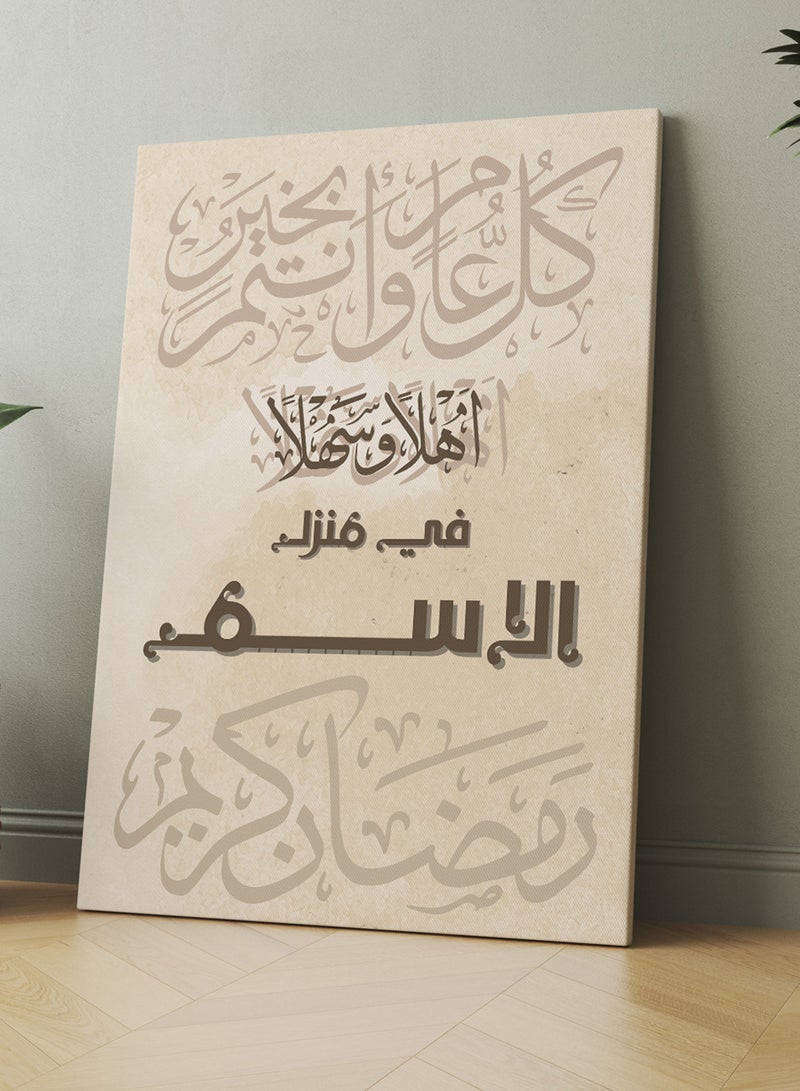 كُلُّ عَامٍ وَأَنتُمْ بِخَيْرٍ
أَهْلاً وَسَهْلاً
في منزل
الاسم
رَمَضَان كَرِيمْ